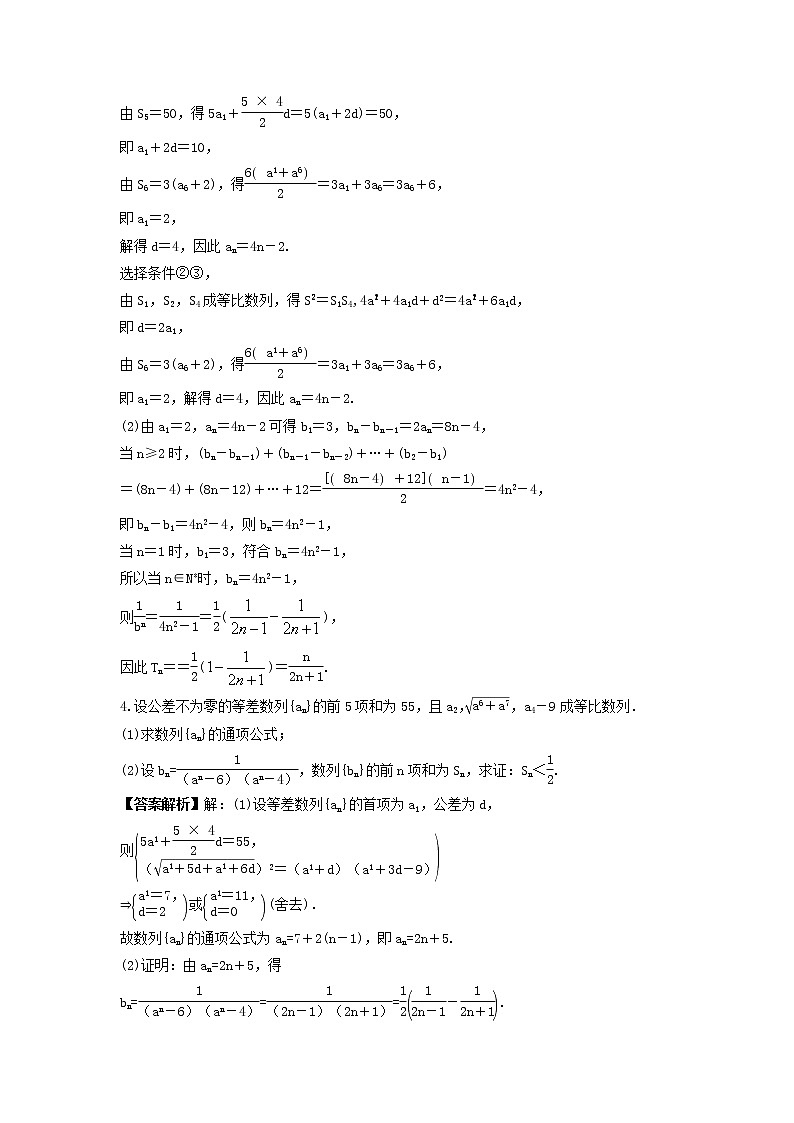 由S₅=50,得5a₁+\frac{5 × 4}{2}d=5(a₁+2d)=50,
即a₁+2d=10,
由S₆=3(a₆+2),得\frac{6( a¹+a⁶)}{2}=3a₁+3a₆=3a₆+6,
即a₁=2,
解得d=4,因此aₙ=4n-2.
选择条件②③,
由S₁,S₂,S₄成等比数列,得S²=S₁S₄,4a²+4a₁d+d²=4a²+6a₁d,
即d=2a₁,
由S₆=3(a₆+2),得\frac{6( a¹+a⁶)}{2}=3a₁+3a₆=3a₆+6,
即a₁=2,解得d=4,因此aₙ=4n-2.
(2)由a₁=2,aₙ=4n-2可得b₁=3,bₙ-bₙ₋₁=2aₙ=8n-4,
当n≥2时,(bₙ-bₙ₋₁)+(bₙ₋₁-bₙ₋₂)+…+(b₂-b₁)
=(8n-4)+(8n-12)+…+12=\frac{[( 8n-4) +12]( n-1)}{2}=4n²-4,
即bₙ-b₁=4n²-4,则bₙ=4n²-1,
当n=1时,b₁=3,符合bₙ=4n²-1,
所以当n∈N*时,bₙ=4n²-1,
则\frac{1}{bⁿ}=\frac{1}{4n²-1}=\frac{1}{2}(\frac{1}{2n-1}-\frac{1}{2n+1}),
因此Tₙ==\frac{1}{2}(1-\frac{1}{2n+1})=\frac{n}{2n+1}.
4.设公差不为零的等差数列{aₙ}的前5项和为55,且a₂,\sqrt{a⁶+a⁷},a₄-9成等比数列.
(1)求数列{aₙ}的通项公式;
(2)设bₙ=\frac{1}{(aⁿ-6)(aⁿ-4)},数列{bₙ}的前n项和为Sₙ,求证:Sₙ<\frac{1}{2}.
【答案解析】解:(1)设等差数列{aₙ}的首项为a₁,公差为d,
则{5a¹+\frac{5 × 4}{2}d=55,
(\sqrt{a¹+5d+a¹+6d})²=(a¹+d)(a¹+3d-9)
⇒{a¹=7, d=2 或{a¹=11, d=0 (舍去).
故数列{aₙ}的通项公式为aₙ=7+2(n-1),即aₙ=2n+5.
(2)证明:由aₙ=2n+5,得
bₙ=\frac{1}{(aⁿ-6)(aⁿ-4)}=\frac{1}{(2n-1)(2n+1)}=\frac{1}{2}(\frac{1}{2n-1}-\frac{1}{2n+1}).